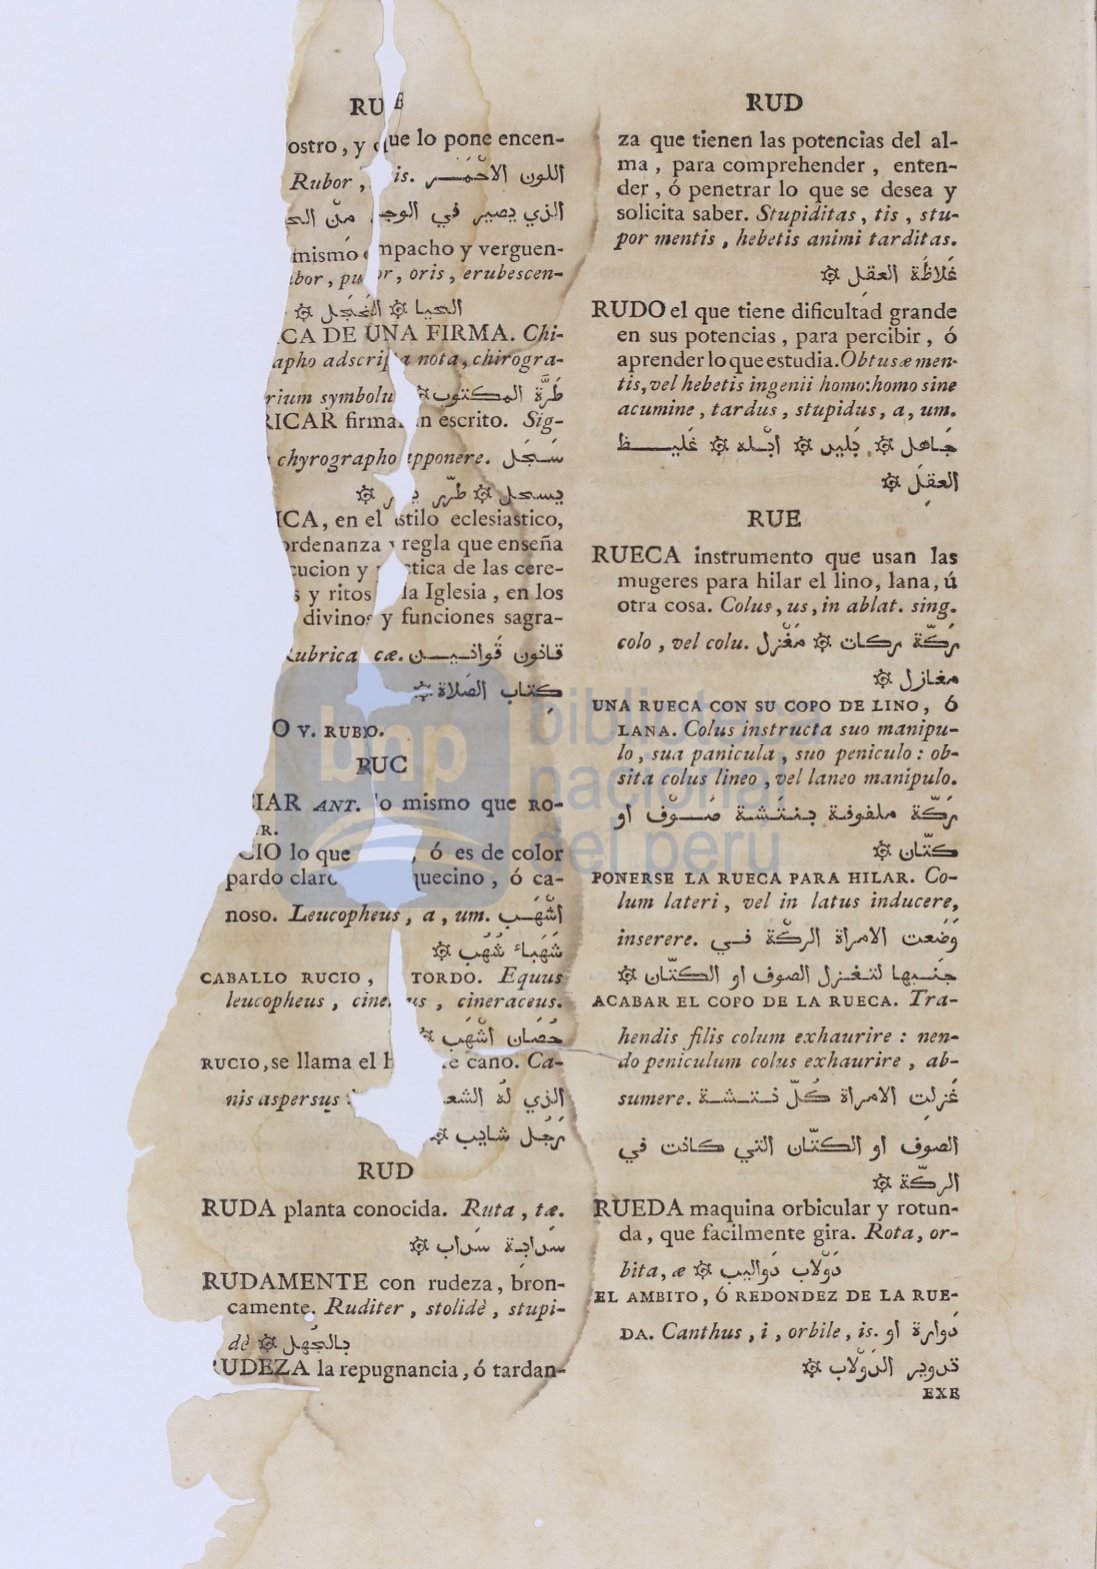 RUB
ostro, y que lo pone encen-
Rubor, is. اللون الاحْمَر
الذي يصير في الوجه منّ
mismo empacho y verguen-
bor, pu or, oris, erubescen-
الحيا ۞ الخَجَل ۞
CA DE UNA FIRMA. Chi-
apho adscripta nota, chirogra-
rium symbolu طَرَّة المكتوب ۞
RICAR firmar un escrito. Sig-
chyrographo apponere. سَجَل
يسجل ۞ طرّر ۞
ICA, en el estilo eclesiastico,
ordenanza y regla que enseña
cucion y practica de las cere-
s y ritos la Iglesia, en los
divinos y funciones sagra-
ubrica cæ. قانون قَوانيــن
كتاب الصَلاة ۞
O V. RUBIO.
RUC
IAR ANT. lo mismo que RO-
R.
CIO lo que , ó es de color
pardo claro quecino, ó ca-
noso. Leucopheus, a, um. اشْهَب
شَهَباء شُهُب ۞
CABALLO RUCIO, TORDO. Equus
leucopheus, cine us, cineraceus.
حُصَان اشْهَب ۞
RUCIO, se llama el h e cano. Ca-
nis aspersus: الذي لهُ الشعـ
رَجُل شايب ۞
RUD
RUDA planta conocida. Ruta, tæ.
سَرابة سَراب ۞
RUDAMENTE con rudeza, bron-
camente. Ruditer, stolidè, stupi-
dè ۞ بالجُهل
RUDEZA la repugnancia, ó tardan-
RUD
za que tienen las potencias del al-
ma, para comprehender, enten-
der, ó penetrar lo que se desea y
solicita saber. Stupiditas, tis, stu-
por mentis, hebetis animi tarditas.
غَلاظَة العقل ۞
RUDO el que tiene dificultad grande
en sus potencias, para percibir, ó
aprender lo que estudia. Obtusæ men-
tis, vel hebetis ingenii homo: homo sine
acumine, tardus, stupidus, a, um.
جَاهل ۞ بَليد ۞ ابْله ۞ غَليــظ
العقِل ۞
RUE
RUECA instrumento que usan las
mugeres para hilar el lino, lana, ú
otra cosa. Colus, us, in ablat. sing.
colo, vel colu. رَكّة ركات ۞ مَغْزل
مغازل ۞
UNA RUECA CON SU COPO DE LINO, Ó
LANA. Colus instructa suo manipu-
lo, sua panicula, suo peniculo: ob-
sita colus lineo, vel laneo manipulo.
رَكّة ملفوفة بنتَشة صَوْف او
كتّان ۞
PONERSE LA RUECA PARA HILAR. Co-
lum lateri, vel in latus inducere,
inserere. وَضَعت الامراة الركّة في
جنبها لتغزل الصوف او الكتّان ۞
ACABAR EL COPO DE LA RUECA. Tra-
hendis filis colum exhaurire: nen-
do peniculum colus exhaurire, ab-
sumere. غَزلت الامراة كُلّ نتشة
الصوف او الكتّان التي كانت في
الركّة ۞
RUEDA maquina orbicular y rotun-
da, que facilmente gira. Rota, or-
bita, æ ۞ دَوْلاب دَواليب
EL AMBITO, Ó REDONDEZ DE LA RUE-
DA. Canthus, i, orbile, is. دَوارة او
تدوير الدَوْلاب ۞
EXE
bnp
biblioteca
nacional
del perú